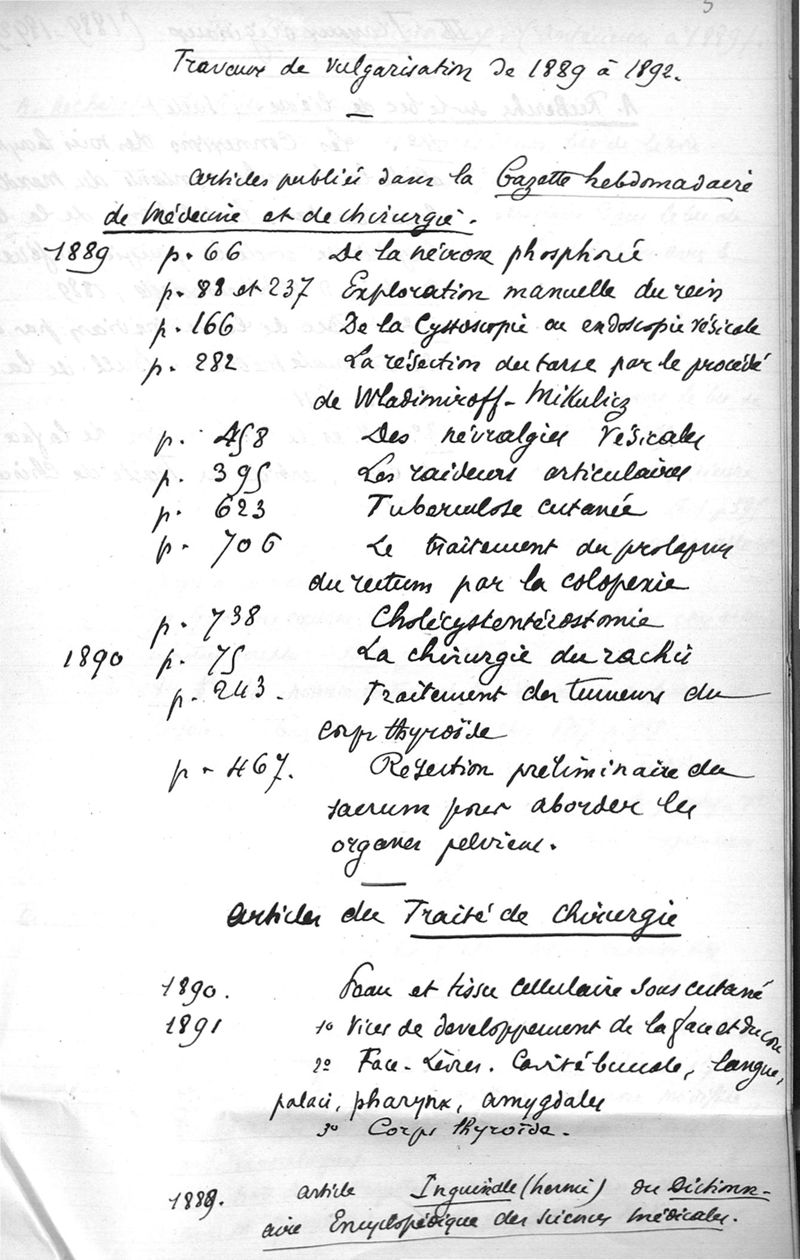 Travaux de vulgarisation de 1889 à 1892.
Articles publiés dans la Gazette hebdomadaire
de Médecine et de chirurgie.
1889 p. 66 De la nécrose phosphorée
p. 88 et 237 Exploration manuelle du rein
p. 166 De la Cystoscopie ou endoscopie vésicale
p. 282 La résection du tarse par le procédé
de Wladimiroff-Mikulicz
p. 458 Des névralgies vésicales
p. 395 Les raideurs articulaires
p. 623 Tuberculose cutanée
p. 706 Le traitement du prolapsus
du rectum par la colopexie
p. 738 Cholécystentérostomie
1890 p. 75 La chirurgie du rachis
p. 243. Traitement des tumeurs du
corps thyroïde
p. 467. Résection préliminaire du
sacrum pour aborder les
organes pelviens.
Articles du Traité de chirurgie
1890. Peau et tissu cellulaire sous cutané
1891 1º Vices de développement de la face et du cou
2º Face. Lèvres. Cavité buccale, langue,
palais, pharynx, amygdales
3º Corps thyroïde.
article Inguinale (hernie) du Dictionn-
aire Encyclopédique des sciences médicales.